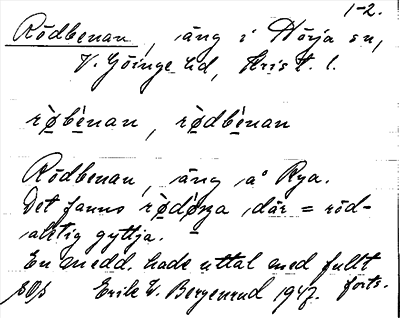 1-2.
Rödbenan, äng i Hörja sn,
V. Göinge hd, Krist. l.
rø̀bènan, rø̀dbènan
Rödbenan, äng å Rya.
Det fanns där = röd-
aktig gyttja.
En medd. hade uttal med fullt
sOs Erik W. Bergenrud 1947. forts.